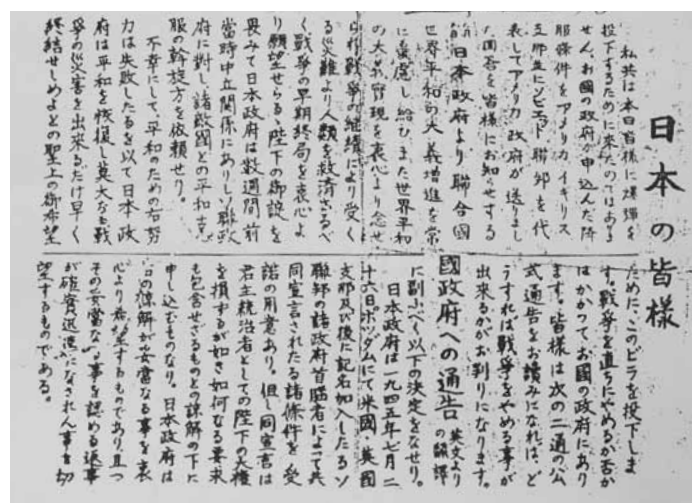 日本の皆様
私共は本日皆様に爆弾を
投下するために来たのではありま
せん。お國の政府が申込んだ降
服條件をアメリカ、イギリス
支那並にソビエット聯邦を代
表してアメリカ政府が送りまし
た回答を皆様にお知らせする
ために、このビラを投下しま
す。戰爭を直ちにやめるか否か
はかかつてお國の政府にあり
ます。皆様は次の二通の公
式通告をお讀みになれば、ど
うすれば戰爭をやめる事が
出来るかがお判りになります。
日本政府より聯合國
國政府への通告 英文よりの飜譯
世界平和的大義増進を常
に憂慮し給ひ また世界平和
の大義實現を衷心より念せ
られ戰爭の継續により受く
る災難より人類を救済さるべ
く戰爭の早期終局を衷心よ
り願望せらる 陛下の御誼を
畏みて日本政府は数週間前
當時中立関係にありしソ聯政
府に對し諸敵國との平和克
服の斡旋方を依頼せり。
不幸にして、平和のための右努
力は失敗したるを以て日本政
府は平和を恢復し莫大なる戰
爭の災害を出来るだけ早く
終結せしめよとの聖上の御希望
に副ふべく以下の決定をなせり。
日本政府は一九四五年七月二
十六日ポツダムにて米國・英國
支那及び後に記名加入したるソ
聯邦の諸政府首脳者によって共
同宣言されたる諸條件を受
諾の用意あり。但し同宣言は
君主統治者としての陛下の大權
を損するが如き如何なる要求
も包含せざるものとの諒解の下に
申し込むものなり。日本政府は
この諒解が妥當なる事を衷
心より希望するものであり且つ
その妥當なる事を認める返事
が確實迅速になされん事を切
望するものである。